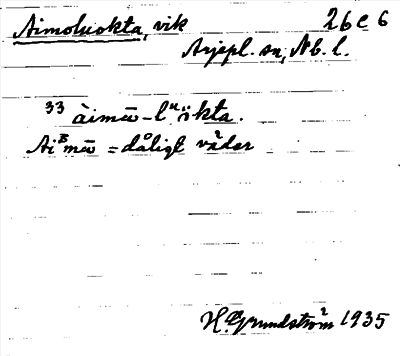 Aimoluokta, vik 26 e 6
Arjepl. sn, Nb. l.
33 àimω̄-lᵘòkta.
Aiᴮmω̄ = dåligt väder
H. Grundström 1935